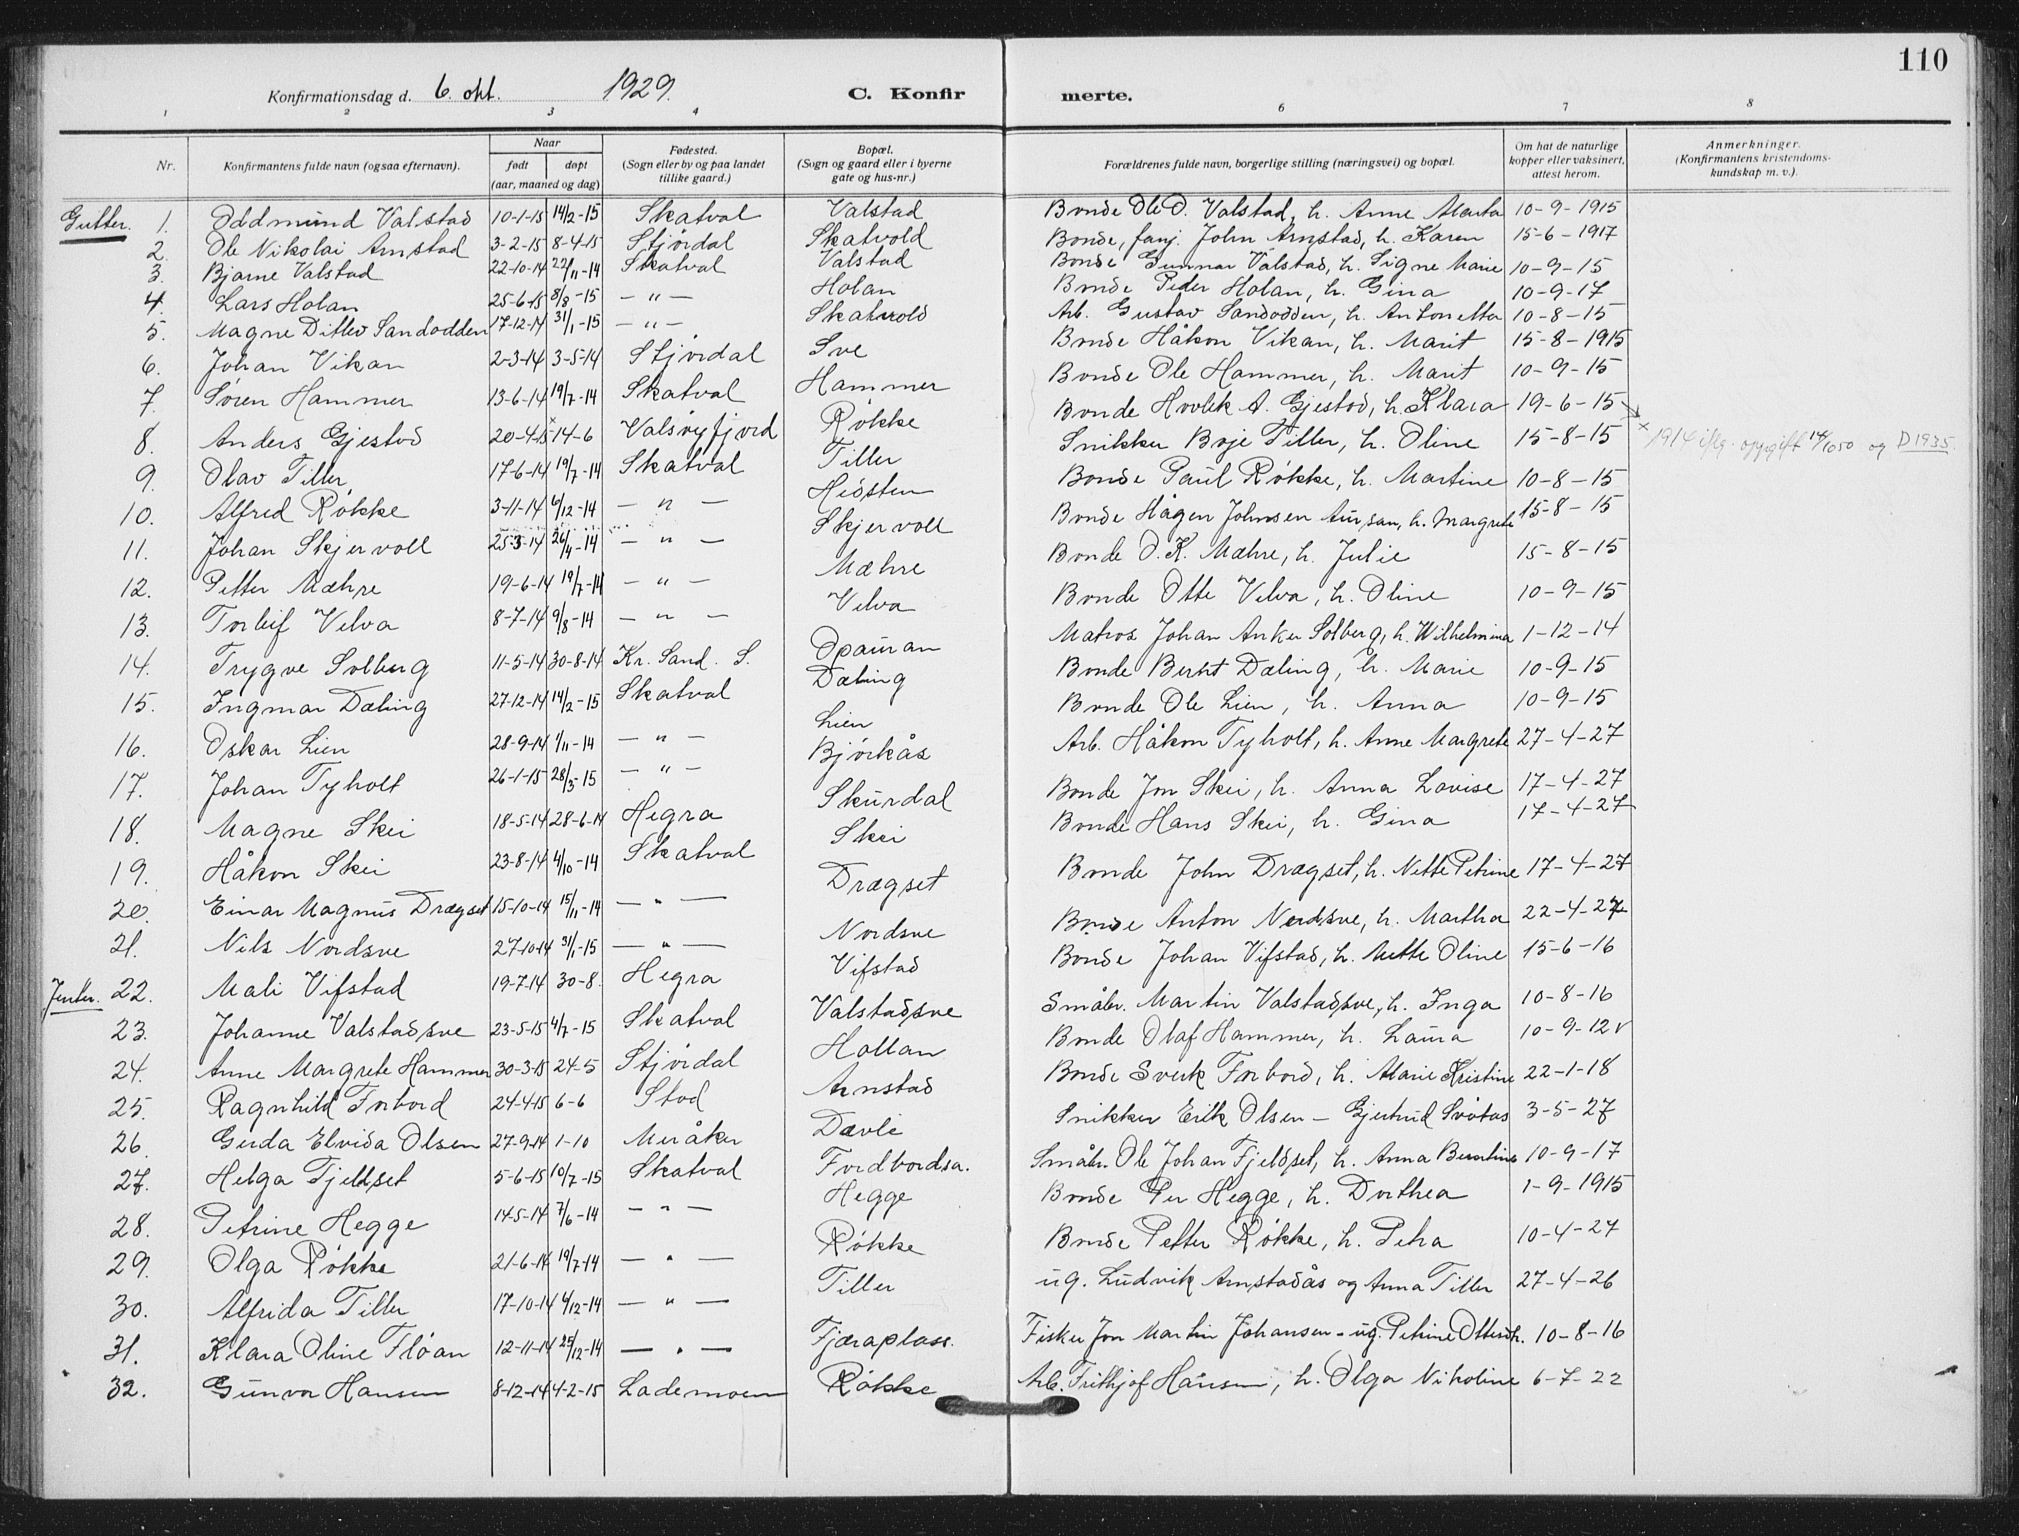 110
Konfirmationsdag d. 6. okt. 1929. C. Konfirmerte.
1 2 3 4 6 7 8
Nr. Konfirmantens fulde navn (ogsaa efternavn). Naar født døpt (aar, maaned og dag) Fødested. (Sogn eller by og paa landet tillike gaard.) Bopæl. (Sogn og gaard eller i byerne gate og hus-nr.) Forældrenes fulde navn, borgerlige stilling (næringsvei) og bopæl. Om hat de naturlige kopper eller vaksinert, attest herom. Anmerkninger. (Konfirmantens kristendoms-kundskap m. v.).
Gutter. 1. Oddmund Valstad 10-1-15 14/2-15 Skatval Valstad Bonde Ole O. Valstad, h. Anne Marta 10-9-1915
2. Ole Nikolai Arnstad 3-2-15 8-4-15 Stjørdal Skatvold Bonde, fanj. John Arnstad, h. Karen 15-6-1917
3. Bjarne Valstad 22-10-14 22/11-14 Skatval Valstad Bonde Gunnar Valstad, h. Signe Marie 10-9-15
4. Lars Holan 25-6-15 8/8-15 — " — Holan Bonde Peder Holan, h. Gina 10-9-17
5. Magne Ditlev Sandodden 17-12-14 31/1-15 — " — Skatvold Arb. Gustav Sandodden, h. Antonetta 10-8-15
6. Johan Vikan 2-3-14 3-5-14 Stjørdal Sve Bonde Håkon Vikan, h. Marit 15-8-1915
7. Søren Hammer 13-6-14 19/7-14 Skatval Hammer Bonde Ole Hammer, h. Marit 10-9-15
8. Anders Gjestad 20-4-15 x 14-6 Valsøyfjord Røkke Bonde Hovlek A. Gjestad, h. Klara 19-6-15 x 1914 iflg. oppgift 14/1050 og D 1935.
9. Olav Tiller 17-6-14 19/7-14 Skatval Tiller Snikker Boje Tiller, h. Oline 15-8-15
10. Alfred Røkke 3-11-14 6/12-14 — " — Heósten Bonde Paul Røkke, h. Martine 10-8-15
11. Johan Skjervoll 25-3-14 26/4-14 — " — Skjervoll Bonde Hågen Johnsen Aursan, h. Margrete 15-8-15
12. Petter Mæhre 19-6-14 19/7-14 — " — Mæhre Bonde O. K. Mæhre, h. Julie 15-8-15
13. Torleif Velva 8-7-14 9/8-14 — " — Velva Bonde Otte Velva, h. Oline 10-9-15
14. Trygve Solberg 11-5-14 30-8-14 Kr. Sand. S. Opauran Matros Johan Anker Solberg, h. Wilhelmina 1-12-14
15. Ingmar Dæling 27-12-14 14/2-15 Skatval Dæling Bonde Bernt Dæling, h. Marie 10-9-15
16. Oskar Lien 28-9-14 1/11-14 — " — Lien Bonde Ole Lien, h. Anna 10-9-15
17. Johan Tyholt 26-1-15 28/3-15 — " — Bjørkås Arb. Håkon Tyholt, h. Anne Margrete 27-4-27
18. Magne Skei 18-5-14 28-6-14 Hegra Skurdal Bonde Jon Skei, h. Anna Lovise 17-4-27
19. Håkon Skei 23-8-14 4/10-14 Skatval Skei Bonde Hans Skei, h. Gina 17-4-27
20. Einar Magnus Drægset 15-10-14 15/11-14 — " — Drægset Bonde John Drægset, h. Nette Petrine 17-4-27
21. Nils Nordsve 27-10-14 31/1-15 — " — Nordsve Bonde Anton Nordsve, h. Martha 22-4-27
Jenter. 22. Mali Vifstad 19-7-14 30-8 Hegra Vifstad Bonde Johan Vifstad, h. Mette Oline 15-6-16
23. Johanne Valstadsve 23-5-15 4/7-15 Skatval Valstadsve Småbr. Martin Valstadsve, h. Inga 10-8-16
24. Anne Margrete Hammer 30-3-15 24-5 Stjørdal Hollan Bonde Olaf Hammer, h. Laura 10-9-12
25. Ragnhild Forbord 24-4-15 6-6 Stod Arnstad Bonde Sverk Forbord, h. Marie Kristine 22-1-18
26. Gerda Elvida Olsen 27-9-14 1-10 Meråker Dævle Snikker Erik Olsen — Gjertrud Svótas 3-5-27
27. Helga Fjeldset 5-6-15 10/7-15 Skatval Fordbordsa. Småbr. Ole Johan Fjeldset, h. Anna Berntine 10-9-17
28. Petrine Hegge 14-5-14 7/6-14 — " — Hegge Bonde Per Hegge, h. Dorthea 1-9-1915
29. Olga Røkke 21-6-14 19/7-14 — " — Røkke Bonde Petter Røkke, h. Petra 10-4-27
30. Alfrida Tiller 17-10-14 6/12-14 — " — Tiller ug. Ludvik Arnstadås og Anna Tiller 27-4-26
31. Klara Oline Fløan 12-11-14 25/12-14 — " — Fjæraplass. Fisker Jon Martin Johansen - ug. Petrine 10-8-16
32. Gunvor Hansen 8-12-14 4-2-15 Lademoen Røkke Arb. Frithjof Hansen, h. Olga Nikoline 6-7-22